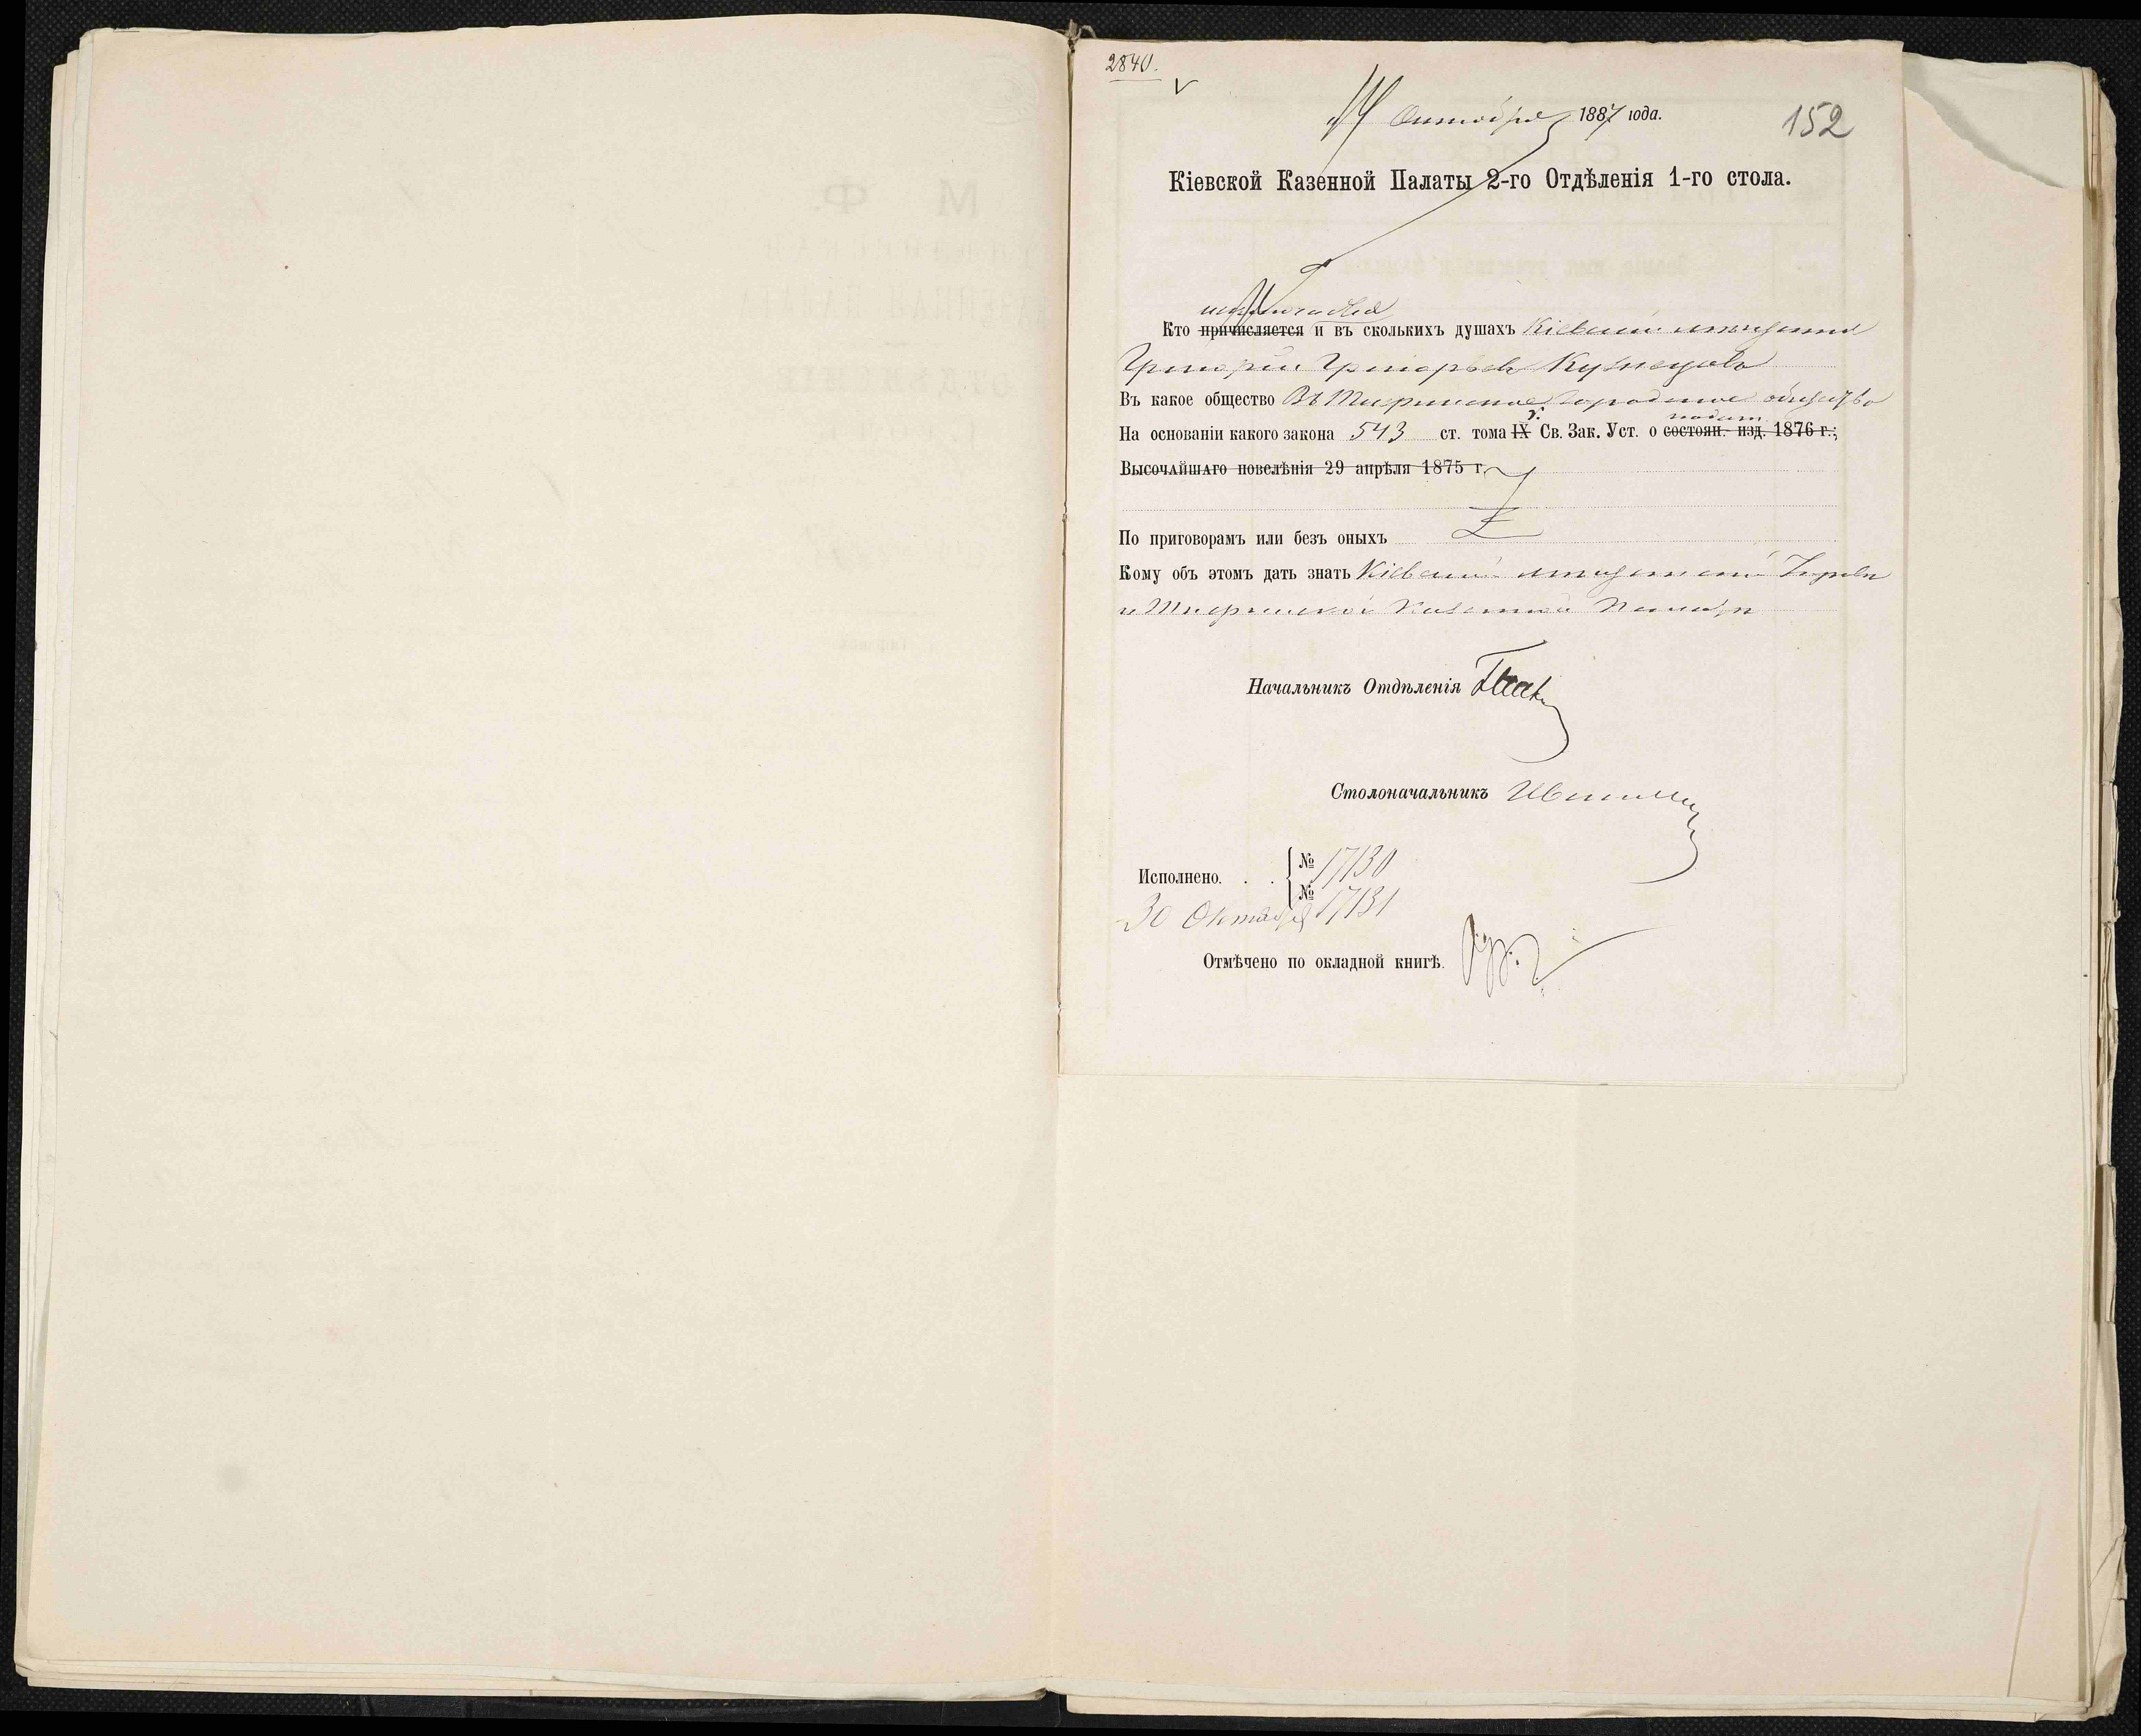 2840.
14 Октября 1887 года.
152
Кіевской Казенной Палаты 2-го Отдѣленія 1-го стола.
Кто причисляется и въ сколькихъ душахъ Кіевскій мѣщанинъ
Григорій Григорьевъ Кузнецовъ
Въ какое общество Въ городское общество
подат.
V.
На основаніи какого закона 543 ст. тома IX Св. Зак. Уст. о состоян. изд. 1876 г.;
Высочайшаго повелѣнія 29 апрѣля 1875 г.
По приговорамъ или безъ оныхъ
Кому объ этомъ дать знать Кіевской мѣщанской Управѣ
и Казенной Палатѣ
Начальникъ Отдѣленія
Столоначальникъ
Исполнено. . . № 17130
№ 17131
30 Октября
Отмѣчено по окладной книгѣ.